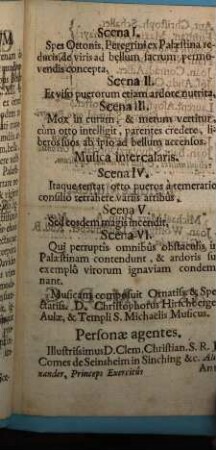 Scena I.
Spes Ottonis, Peregrini ex Palæstina re
ducis, de viris ad bellum sacrum permo-
vendis concepta.
Scena II.
Et viso puerorum etiam ardore nutrita,
Scena III.
Mox in curam, & metum vertitur,
cùm otto intelligit, parentes credere, li-
beros suos ab ipso ad bellum accensos.
Musica Intercalaris.
Scena IV.
Itaque tentat otto pueros à temerario
consilio retrahere variis artibus.
Scena V.
Sed eosdem magis incendit.
Scena VI.
Qui perruptis omnibus obstaculis in
Palæstinam contendunt, & ardoris su
exemplô virorum ignaviam condem
nant.
Musicam composuit Ornatiss. & Spe
ctatiss. D. Christophorus Hirschberger
Aulæ, & Templi S. Michaëlis Musicus.
Personæ agentes.
Illustrissimus D. Clem. Christian. S. R. I.
Comes de Seinsheim in Sinching &c. Ale
xander, Princeps Exercitûs